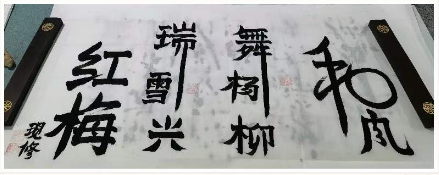 和风
舞杨柳
瑞雪兴
红梅
现修